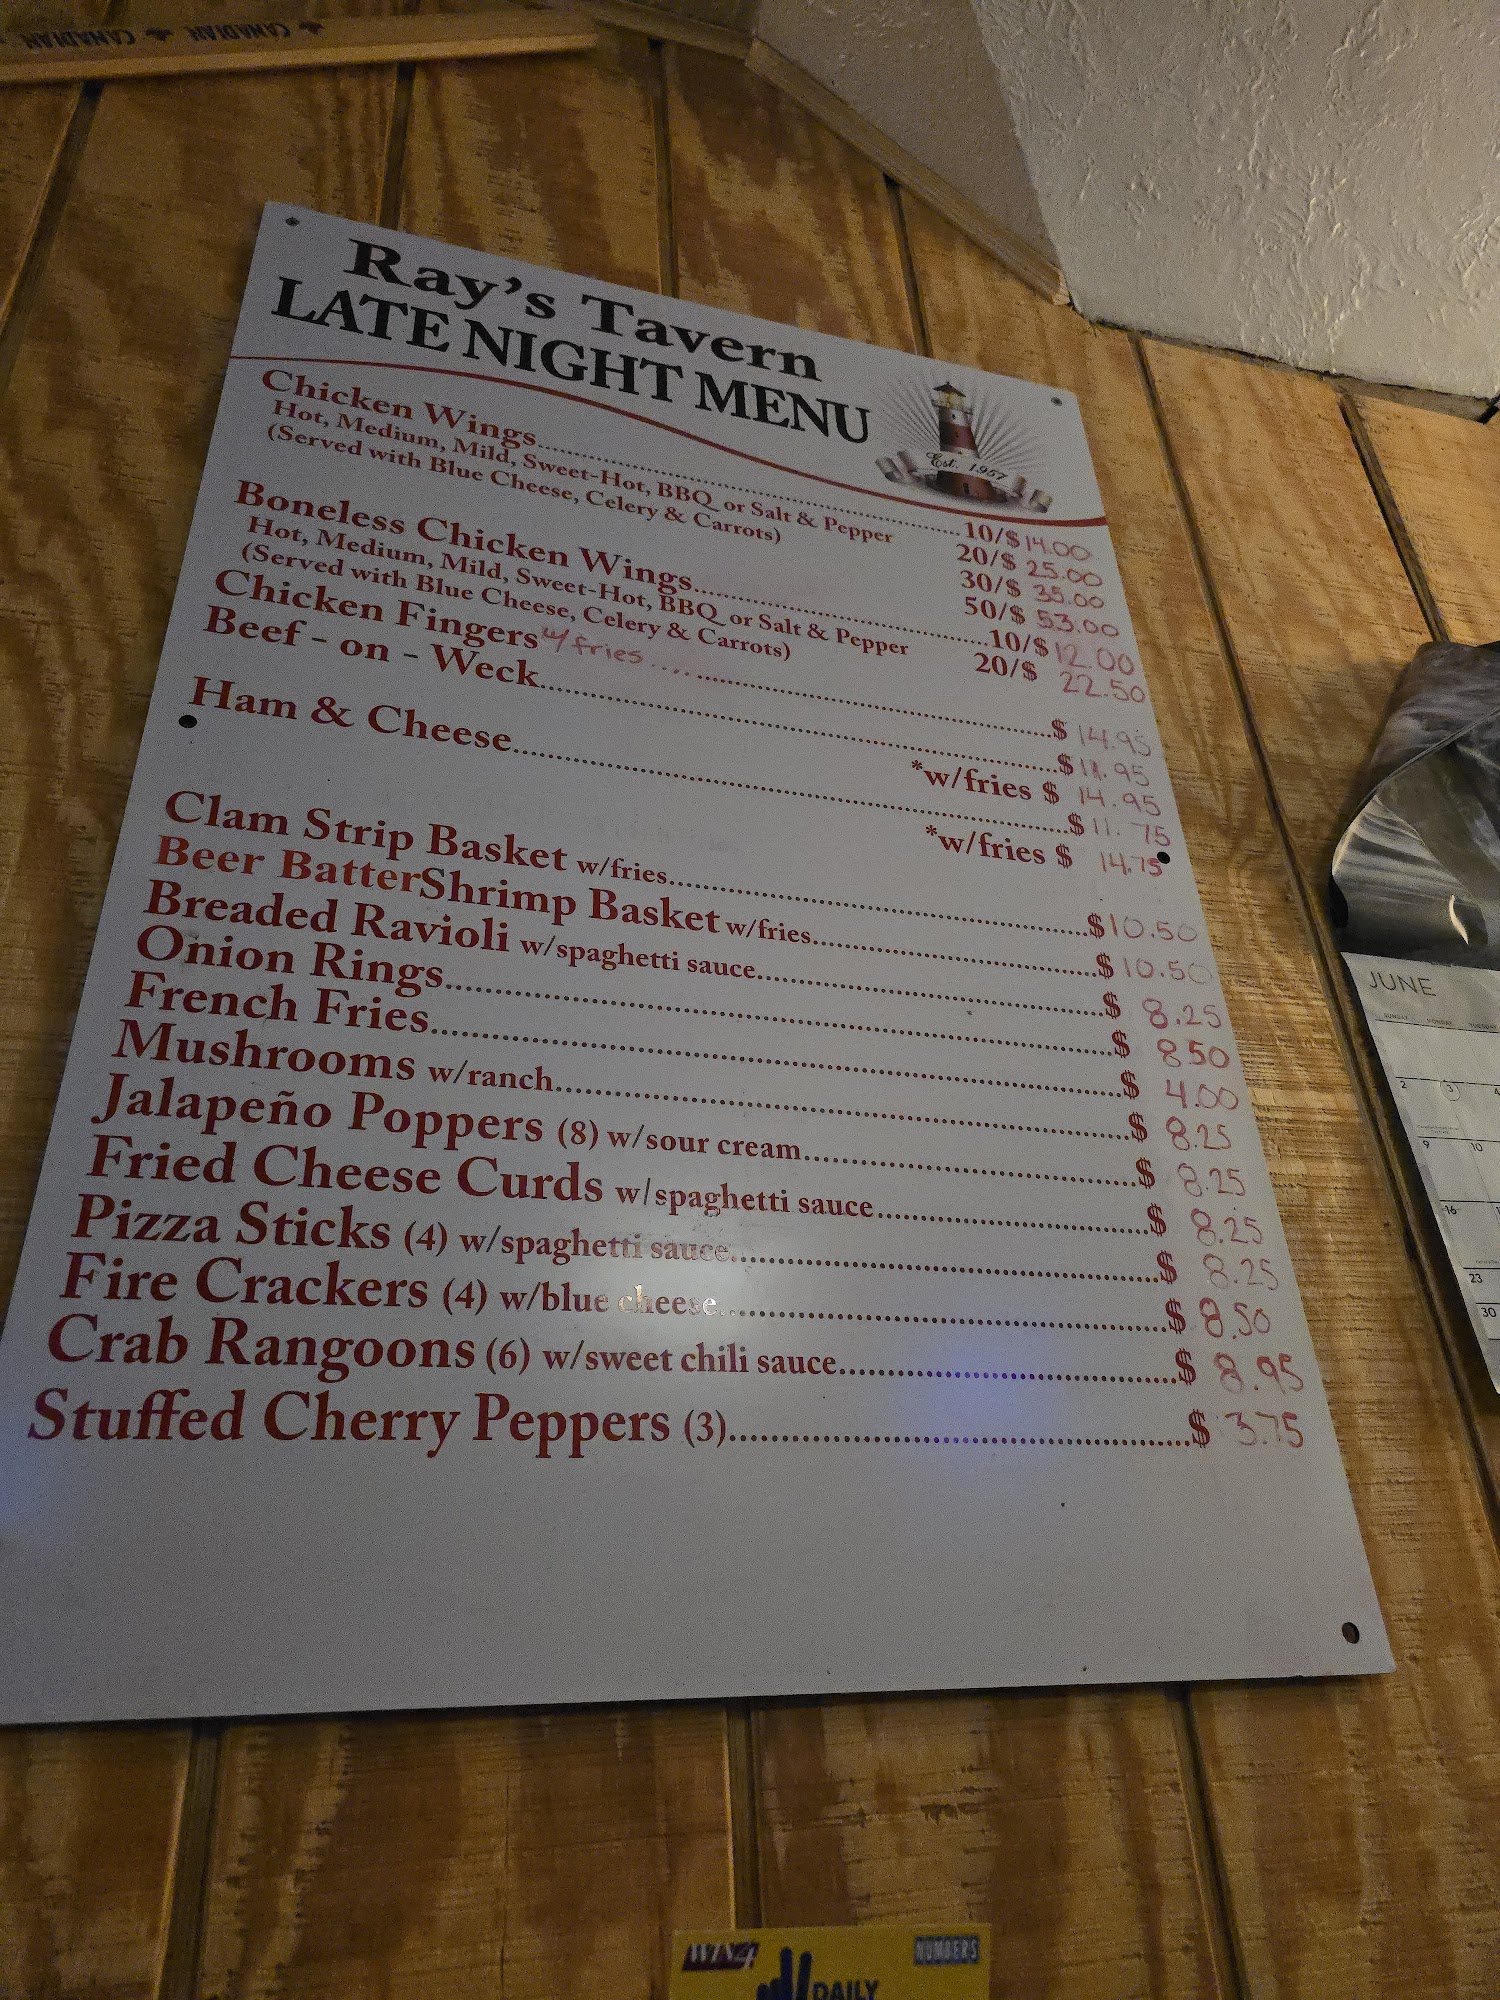 CANADIAN CANADIAN
Ray's Tavern
LATE NIGHT MENU
Est. 1957
Chicken Wings....................10/$14.00
Hot, Medium, Mild, Sweet-Hot, BBQ or Salt & Pepper 20/$ 25.00
(Served with Blue Cheese, Celery & Carrots) 30/$ 35.00
50/$ 53.00
Boneless Chicken Wings....................10/$12.00
Hot, Medium, Mild, Sweet-Hot, BBQ or Salt & Pepper 20/$ 22.50
(Served with Blue Cheese, Celery & Carrots)
Chicken Fingers w/fries....................$ 14.95
Beef - on - Weck....................$11.95
*w/fries $ 14.95
Ham & Cheese....................$11.75
*w/fries $ 14.75
Clam Strip Basket w/fries....................$10.50
Beer BatterShrimp Basket w/fries....................$ 10.50
Breaded Ravioli w/spaghetti sauce....................$ 8.25
Onion Rings....................$ 8.50
French Fries....................$ 4.00
Mushrooms w/ranch....................$ 8.25
Jalapeño Poppers (8) w/sour cream....................$ 8.25
Fried Cheese Curds w/spaghetti sauce....................$ 8.25
Pizza Sticks (4) w/spaghetti sauce....................$ 8.25
Fire Crackers (4) w/blue cheese....................$ 8.50
Crab Rangoons (6) w/sweet chili sauce....................$ 8.95
Stuffed Cherry Peppers (3)....................$ 3.75
JUNE
SUNDAY MONDAY TUESDAY
2 3 4
9 10
16
23
30
WIN4 NUMBERS
DAILY